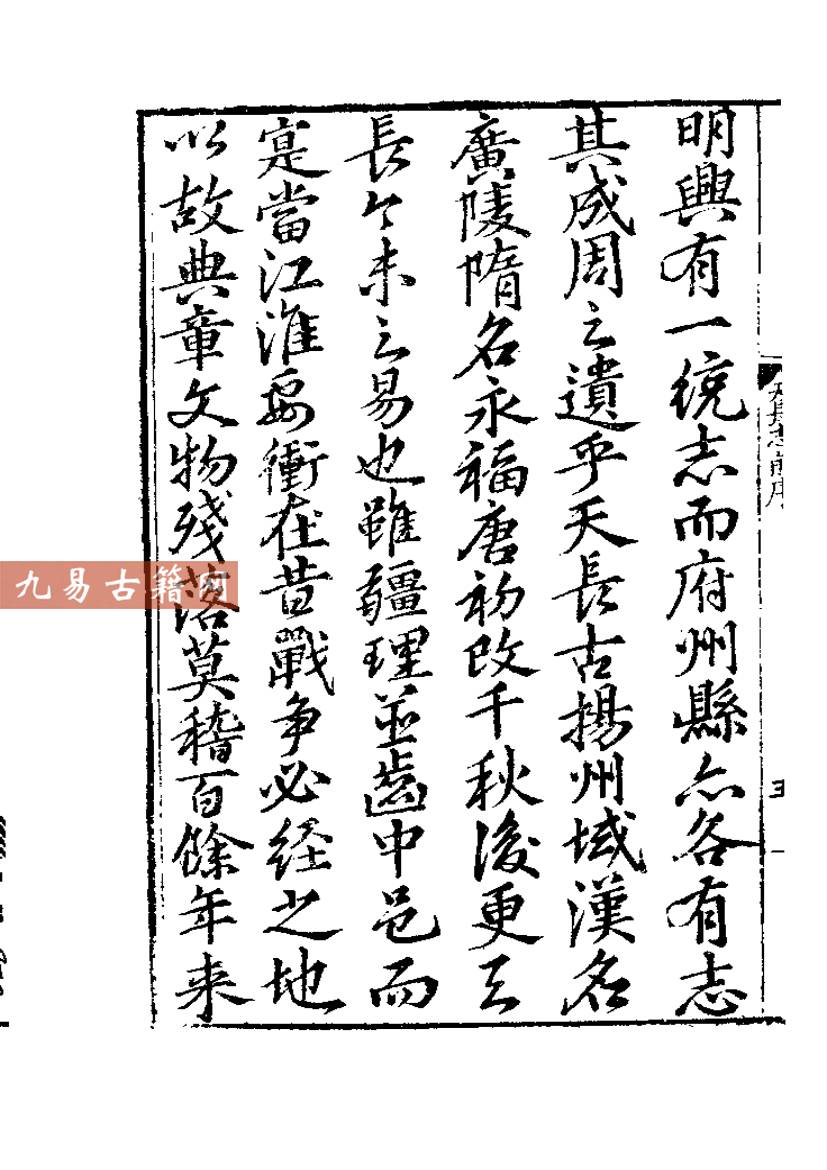 明興有一統志而府州縣亦各有志
其成周之遺乎天長古揚州域漢名
廣陵隋名永福唐初改千秋後更天
長今未之易也雖疆理並齒中邑而
寔當江淮要衝在昔戰争必経之地
以故典章文物殘落莫稽百餘年来
天長志前序
三
九易古籍网